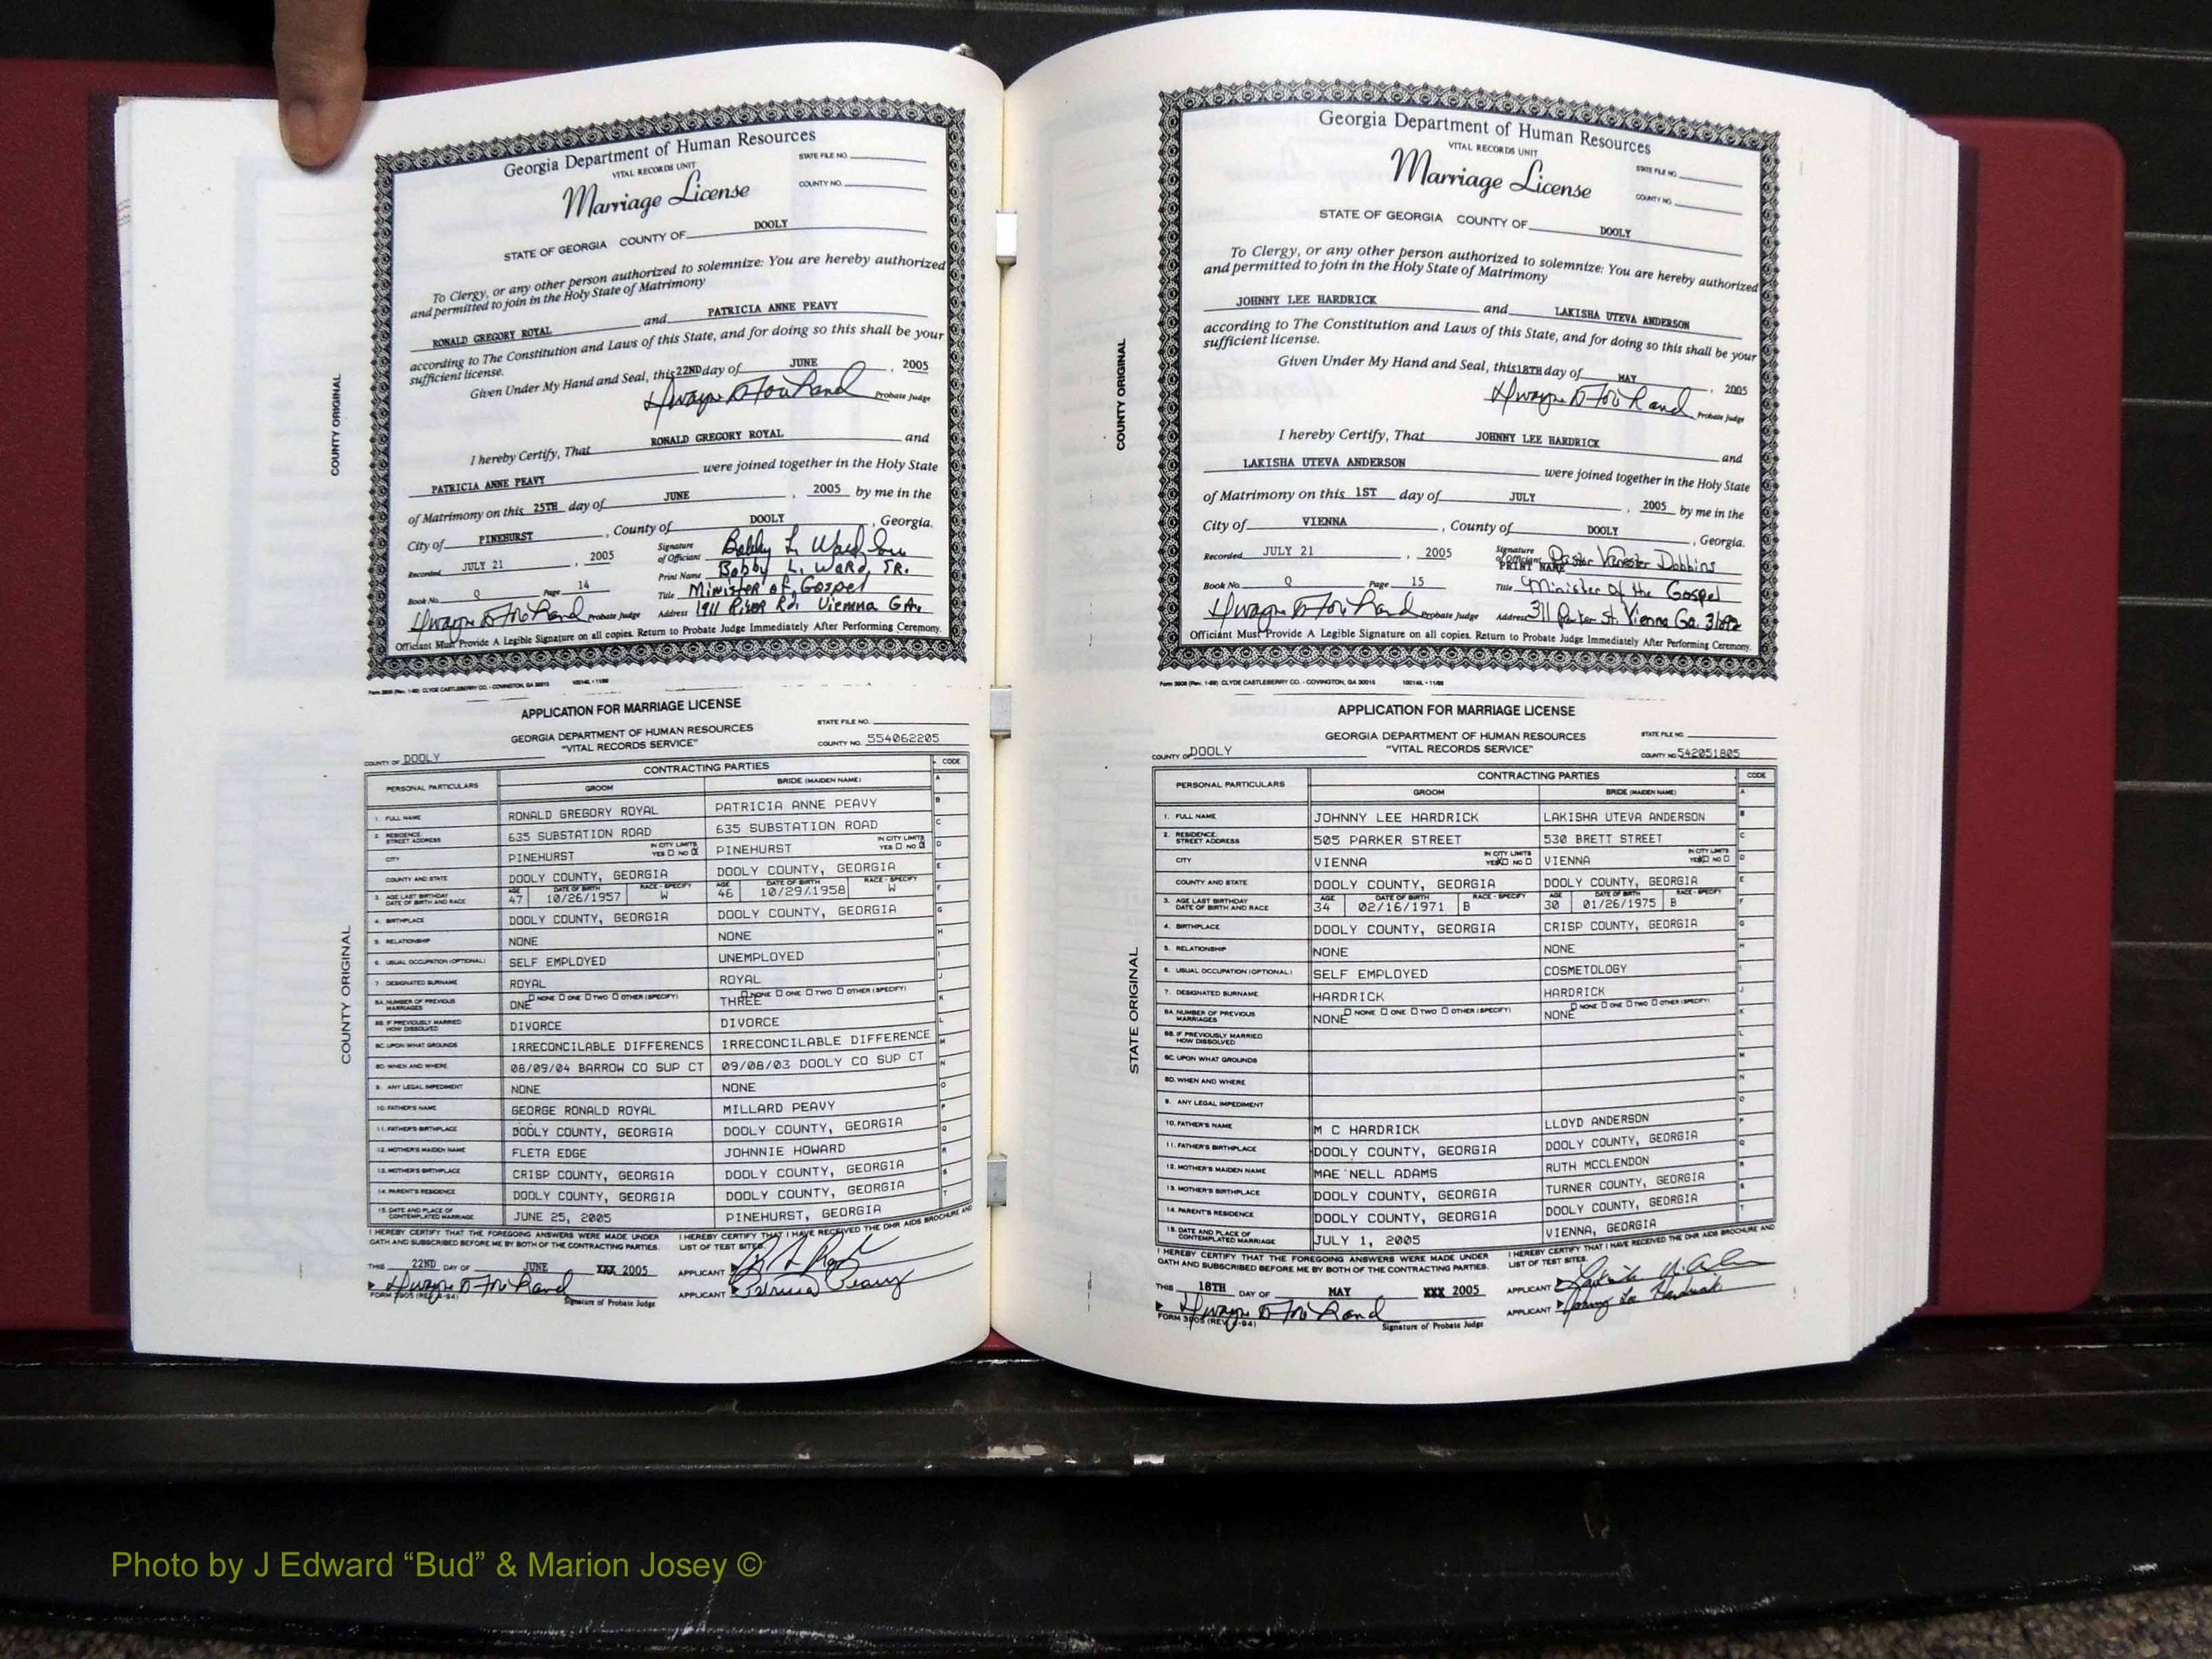 Georgia Department of Human Resources
VITAL RECORDS UNIT
STATE FILE NO.
Marriage License
COUNTY NO.
STATE OF GEORGIA COUNTY OF DOOLY
To Clergy, or any other person authorized to solemnize: You are hereby authorized
and permitted to join in the Holy State of Matrimony
RONALD GREGORY ROYAL and PATRICIA ANNE PEAVY
according to The Constitution and Laws of this State, and for doing so this shall be your
sufficient license.
Given Under My Hand and Seal, this 22ND day of JUNE, 2005
Probate Judge
I hereby Certify, That RONALD GREGORY ROYAL and
PATRICIA ANNE PEAVY were joined together in the Holy State
of Matrimony on this 25TH day of JUNE, 2005 by me in the
City of PINEHURST, County of DOOLY, Georgia.
Recorded JULY 21, 2005 Signature of Officiant
Print Name Bobby L. Ward, SR.
Book No. Q Page 14 Title Minister of Gospel
Probate Judge Address 1911 River Rd. Vienna GA.
Officiant Must Provide A Legible Signature on all copies. Return to Probate Judge Immediately After Performing Ceremony.
COUNTY ORIGINAL
Form 3908 (Rev. 1-89) CLYDE CASTLEBERRY CO. - COVINGTON, GA 30015
APPLICATION FOR MARRIAGE LICENSE
GEORGIA DEPARTMENT OF HUMAN RESOURCES
STATE FILE NO.
"VITAL RECORDS SERVICE"
COUNTY NO. 554062205
COUNTY OF DOOLY
PERSONAL PARTICULARS CONTRACTING PARTIES CODE
GROOM BRIDE (MAIDEN NAME) A
1. FULL NAME RONALD GREGORY ROYAL PATRICIA ANNE PEAVY B
2. RESIDENCE: STREET ADDRESS 635 SUBSTATION ROAD 635 SUBSTATION ROAD C
CITY PINEHURST IN CITY LIMITS YES ☐ NO ☒ PINEHURST IN CITY LIMITS YES ☐ NO ☒ D
COUNTY AND STATE DOOLY COUNTY, GEORGIA DOOLY COUNTY, GEORGIA E
3. AGE LAST BIRTHDAY DATE OF BIRTH AND RACE AGE 47 DATE OF BIRTH 10/26/1957 RACE - SPECIFY W AGE 46 DATE OF BIRTH 10/29/1958 RACE - SPECIFY W F
4. BIRTHPLACE DOOLY COUNTY, GEORGIA DOOLY COUNTY, GEORGIA G
5. RELATIONSHIP NONE NONE H
6. USUAL OCCUPATION (OPTIONAL) SELF EMPLOYED UNEMPLOYED I
7. DESIGNATED SURNAME ROYAL ROYAL J
8A. NUMBER OF PREVIOUS MARRIAGES ONE ☐ NONE ☐ ONE ☐ TWO ☐ OTHER (SPECIFY) THREE ☐ NONE ☐ ONE ☐ TWO ☐ OTHER (SPECIFY) K
8B. IF PREVIOUSLY MARRIED HOW DISSOLVED DIVORCE DIVORCE L
8C. UPON WHAT GROUNDS IRRECONCILABLE DIFFERENCS IRRECONCILABLE DIFFERENCE M
8D. WHEN AND WHERE 08/09/04 BARROW CO SUP CT 09/08/03 DOOLY CO SUP CT N
9. ANY LEGAL IMPEDIMENT NONE NONE O
10. FATHER'S NAME GEORGE RONALD ROYAL MILLARD PEAVY P
11. FATHER'S BIRTHPLACE DOOLY COUNTY, GEORGIA DOOLY COUNTY, GEORGIA Q
12. MOTHER'S MAIDEN NAME FLETA EDGE JOHNNIE HOWARD R
13. MOTHER'S BIRTHPLACE CRISP COUNTY, GEORGIA DOOLY COUNTY, GEORGIA S
14. PARENT'S RESIDENCE DOOLY COUNTY, GEORGIA DOOLY COUNTY, GEORGIA T
15. DATE AND PLACE OF CONTEMPLATED MARRIAGE JUNE 25, 2005 PINEHURST, GEORGIA
I HEREBY CERTIFY THAT THE FOREGOING ANSWERS WERE MADE UNDER
OATH AND SUBSCRIBED BEFORE ME BY BOTH OF THE CONTRACTING PARTIES.
I HEREBY CERTIFY THAT I HAVE RECEIVED THE DHR AIDS BROCHURE AND
LIST OF TEST SITES.
THIS 22ND DAY OF JUNE XXX 2005
APPLICANT
APPLICANT Patricia Peavy
FORM 3905 (REV. 4-94) Signature of Probate Judge
COUNTY ORIGINAL
Georgia Department of Human Resources
VITAL RECORDS UNIT
STATE FILE NO.
Marriage License
COUNTY NO.
STATE OF GEORGIA COUNTY OF DOOLY
To Clergy, or any other person authorized to solemnize: You are hereby authorized
and permitted to join in the Holy State of Matrimony
JOHNNY LEE HARDRICK and LAKISHA UTEVA ANDERSON
according to The Constitution and Laws of this State, and for doing so this shall be your
sufficient license.
Given Under My Hand and Seal, this 18TH day of MAY, 2005
Probate Judge
I hereby Certify, That JOHNNY LEE HARDRICK and
LAKISHA UTEVA ANDERSON were joined together in the Holy State
of Matrimony on this 1ST day of JULY, 2005 by me in the
City of VIENNA, County of DOOLY, Georgia.
Recorded JULY 21, 2005 Signature of Officiant Pastor Dobbins
PRINT NAME
Book No. Q Page 15 Title Minister of the Gospel
Probate Judge Address 311 Parker St. Vienna Ga. 31092
Officiant Must Provide A Legible Signature on all copies. Return to Probate Judge Immediately After Performing Ceremony.
COUNTY ORIGINAL
Form 3908 (Rev. 1-89) CLYDE CASTLEBERRY CO. - COVINGTON, GA 30015
APPLICATION FOR MARRIAGE LICENSE
GEORGIA DEPARTMENT OF HUMAN RESOURCES
STATE FILE NO.
"VITAL RECORDS SERVICE"
COUNTY NO. 542051805
COUNTY OF DOOLY
PERSONAL PARTICULARS CONTRACTING PARTIES CODE
GROOM BRIDE (MAIDEN NAME) A
1. FULL NAME JOHNNY LEE HARDRICK LAKISHA UTEVA ANDERSON B
2. RESIDENCE: STREET ADDRESS 505 PARKER STREET 530 BRETT STREET C
CITY VIENNA IN CITY LIMITS YES ☒ NO ☐ VIENNA IN CITY LIMITS YES ☒ NO ☐ D
COUNTY AND STATE DOOLY COUNTY, GEORGIA DOOLY COUNTY, GEORGIA E
3. AGE LAST BIRTHDAY DATE OF BIRTH AND RACE AGE 34 DATE OF BIRTH 02/16/1971 RACE - SPECIFY B AGE 30 DATE OF BIRTH 01/26/1975 RACE - SPECIFY B F
4. BIRTHPLACE DOOLY COUNTY, GEORGIA CRISP COUNTY, GEORGIA G
5. RELATIONSHIP NONE NONE H
6. USUAL OCCUPATION (OPTIONAL) SELF EMPLOYED COSMETOLOGY I
7. DESIGNATED SURNAME HARDRICK HARDRICK J
8A. NUMBER OF PREVIOUS MARRIAGES NONE ☐ NONE ☐ ONE ☐ TWO ☐ OTHER (SPECIFY) NONE ☐ NONE ☐ ONE ☐ TWO ☐ OTHER (SPECIFY) K
8B. IF PREVIOUSLY MARRIED HOW DISSOLVED L
8C. UPON WHAT GROUNDS M
8D. WHEN AND WHERE N
9. ANY LEGAL IMPEDIMENT O
10. FATHER'S NAME M C HARDRICK LLOYD ANDERSON P
11. FATHER'S BIRTHPLACE DOOLY COUNTY, GEORGIA DOOLY COUNTY, GEORGIA Q
12. MOTHER'S MAIDEN NAME MAE NELL ADAMS RUTH MCCLENDON R
13. MOTHER'S BIRTHPLACE DOOLY COUNTY, GEORGIA TURNER COUNTY, GEORGIA S
14. PARENT'S RESIDENCE DOOLY COUNTY, GEORGIA DOOLY COUNTY, GEORGIA T
15. DATE AND PLACE OF CONTEMPLATED MARRIAGE JULY 1, 2005 VIENNA, GEORGIA
I HEREBY CERTIFY THAT THE FOREGOING ANSWERS WERE MADE UNDER
OATH AND SUBSCRIBED BEFORE ME BY BOTH OF THE CONTRACTING PARTIES.
I HEREBY CERTIFY THAT I HAVE RECEIVED THE DHR AIDS BROCHURE AND
LIST OF TEST SITES.
THIS 18TH DAY OF MAY XXX 2005
APPLICANT
APPLICANT Johnny Lee Hardrick
FORM 3905 (REV. 4-94) Signature of Probate Judge
STATE ORIGINAL
Photo by J Edward “Bud” & Marion Josey ©